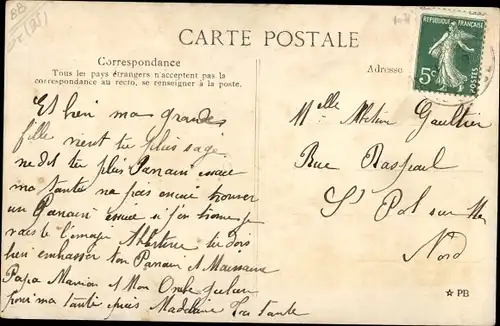 BB
CARTE POSTALE
Correspondance
Tous les pays étrangers n'acceptent pas la
correspondance au recto, se renseigner à la poste.
Adresse
RÉPUBLIQUE FRANÇAISE
5c
POSTES
Et bien ma grande
fille vient tu plus sage
ne dit tu plus Panain
ma tante ne pas encore trouver
un Panain si j'en trouve
vais te l'envoyer Martine tu dois
bien embrasser ton Panain et Mamaine
Papa Marion et Mon Oncle Julien
pour ma tante puis Madeleine Ta tante
Melle Gaultier
Rue Raspail
St Pol sur Mer
Nord
PB